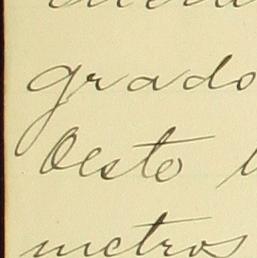 grado
Oeste
metros